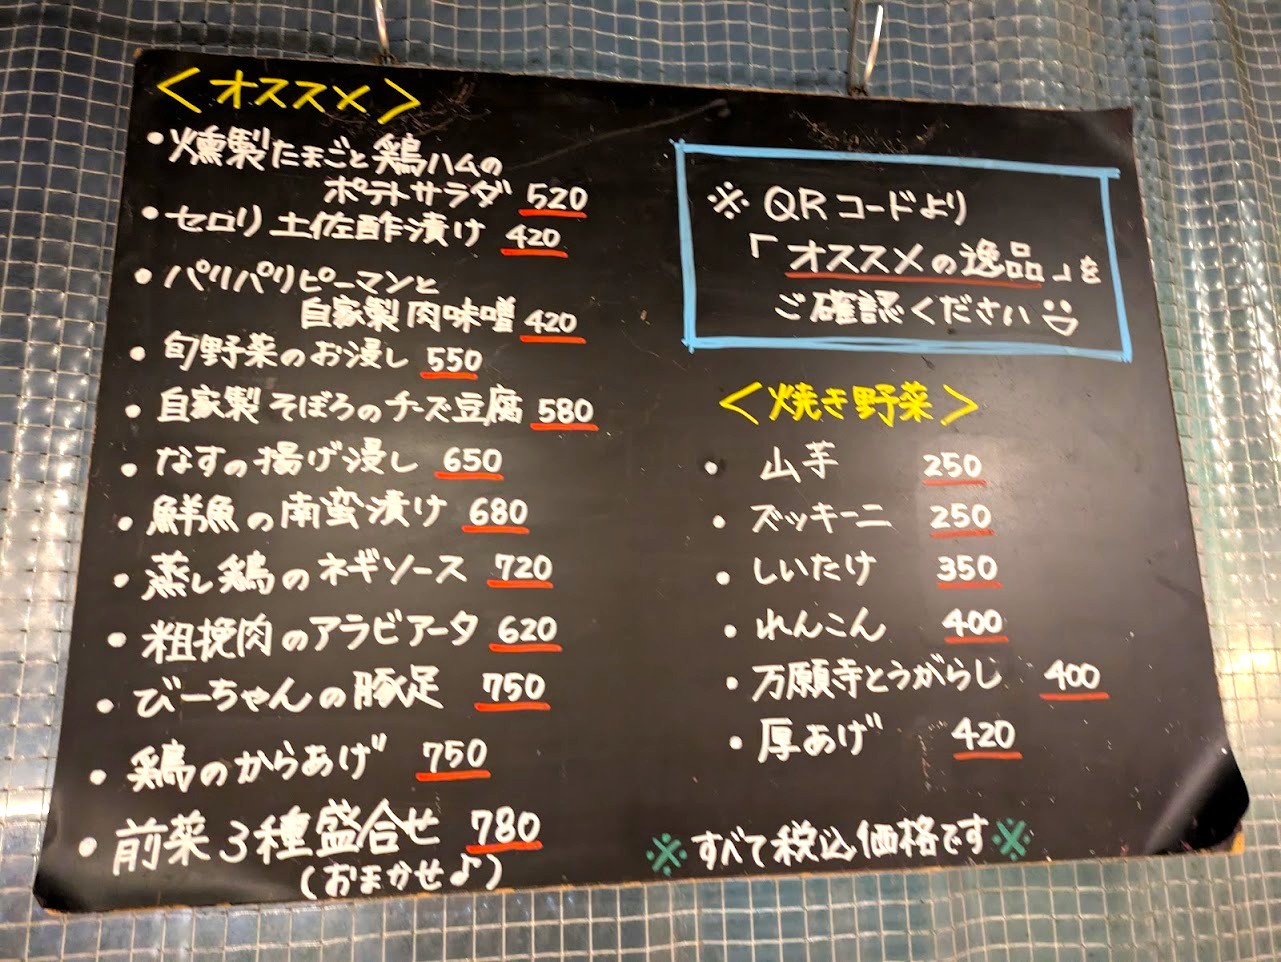 <オススメ>
・燻製たまごと鶏ハムの
ポテトサラダ 520
・セロリ土佐酢漬け 420
・パリパリピーマンと
自家製肉味噌 420
・旬野菜のお浸し 550
・自家製そぼろのチーズ豆腐 580
・なすの揚げ浸し 650
・鮮魚の南蛮漬け 680
・蒸し鶏のネギソース 720
・粗挽肉のアラビアータ 620
・びーちゃんの豚足 750
・鶏のからあげ 750
・前菜3種盛合せ 780
(おまかせ♪)
※QRコードより
「オススメの逸品」を
ご確認ください
<焼き野菜>
・山芋 250
・ズッキーニ 250
・しいたけ 350
・れんこん 400
・万願寺とうがらし 400
・厚あげ 420
※すべて税込価格です※